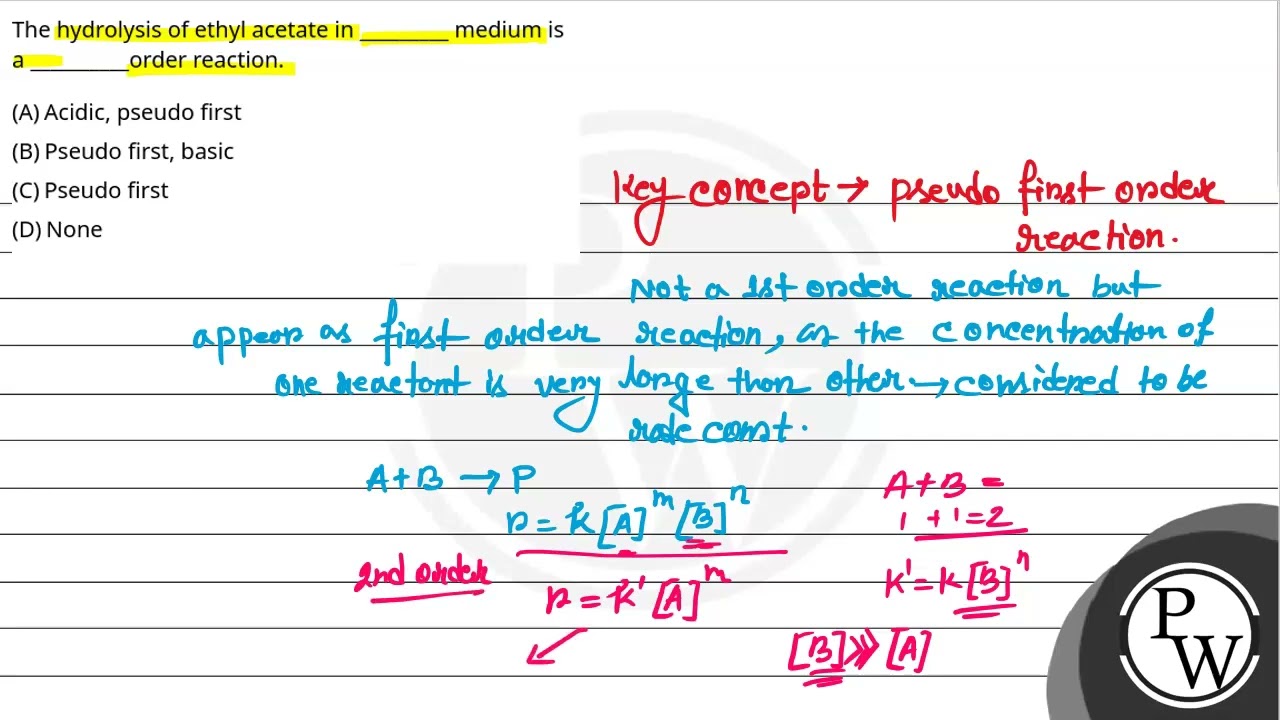 The hydrolysis of ethyl acetate in ________ medium is
a _________order reaction.
(A) Acidic, pseudo first
(B) Pseudo first, basic
(C) Pseudo first
(D) None
Key concept → pseudo first order
reaction.
Not a 1st order reaction but
appear as first order reaction, as the concentration of
one reactant is very large than other → considered to be
rate const.
A+B → P
r = k[A]^m [B]^n
2nd order
r = k'[A]^m
A+B =
1 + 1 = 2
K' = K[B]^n
[B]>>>[A]
PW